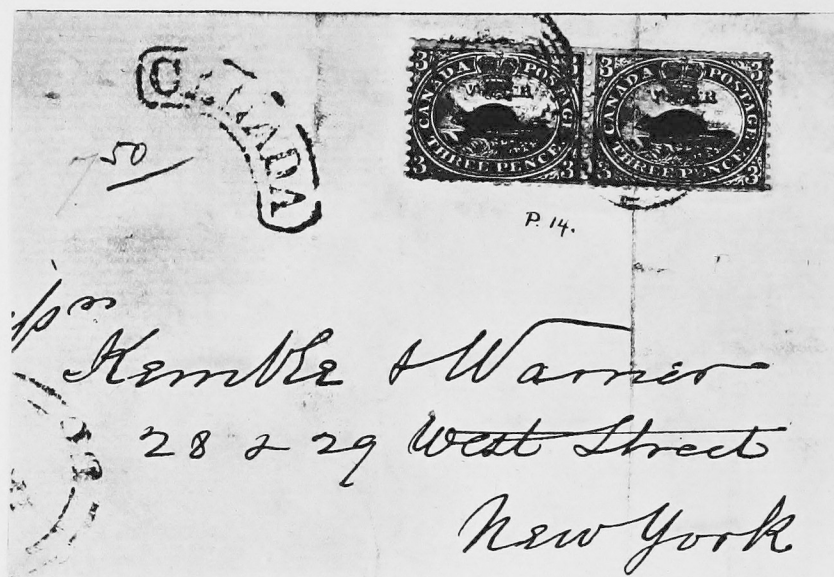 CANADA
3 CANADA POSTAGE 3
V R
3 THREE PENCE 3
3 CANADA POSTAGE 3
V R
3 THREE PENCE 3
50/
P. 14.
Kemble & Warner
28 & 29 West Street
New York